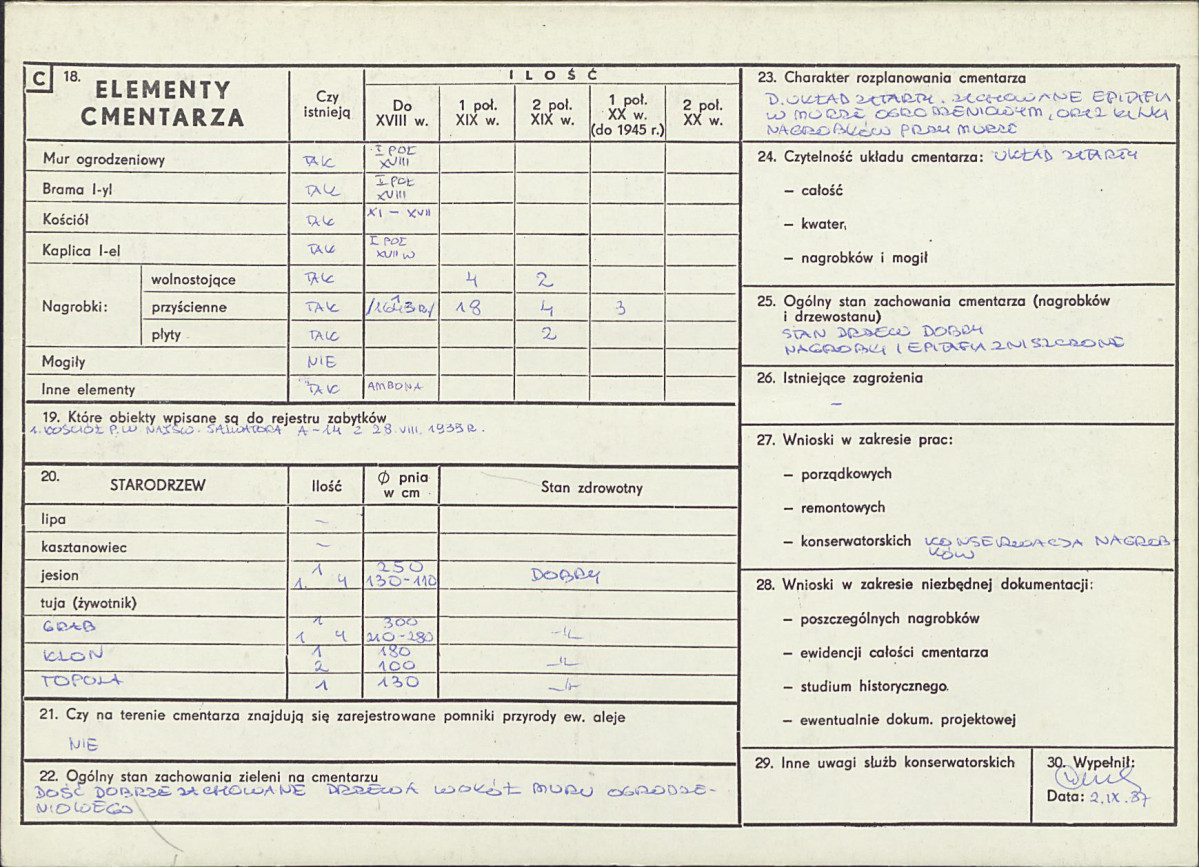 C 18. ELEMENTY CMENTARZA
Czy istnieją
I L O Ś Ć
Do XVIII w.
1 poł. XIX w.
2 poł. XIX w.
1 poł. XX w. (do 1945 r.)
2 poł. XX w.
Mur ogrodzeniowy TAK I POŁ XVIII
Brama I-yl TAK I POŁ XVIII
Kościół TAK XI – XVII
Kaplica I-el TAK I POŁ XVII W
Nagrobki:
wolnostojące TAK 4 2
przyścienne TAK 1 /1643 R/ 18 4 3
płyty TAK 2
Mogiły NIE
Inne elementy TAK AMBONA
19. Które obiekty wpisane są do rejestru zabytków
1. KOŚCIÓŁ P.W NAJŚW. SALWATORA A-14 Z 28.VIII.1933 R.
20. STARODRZEW
Ilość
Ø pnia w cm
Stan zdrowotny
lipa –
kasztanowiec –
jesion 1 250
1. 4 130-110 DOBRY
tuja (żywotnik)
GRAB 1 300
1 4 210-280 –„–
KLON 1 180
2 100 –„–
TOPOLA 1 130 –„–
21. Czy na terenie cmentarza znajdują się zarejestrowane pomniki przyrody ew. aleje
NIE
22. Ogólny stan zachowania zieleni na cmentarzu
DOŚĆ DOBRZE ZACHOWANE DRZEWA WOKÓŁ MURU OGRODZE-
NIOWEGO
23. Charakter rozplanowania cmentarza
D. UKŁAD ZATARTY. ZACHOWANE EPITAFIA
W MURZE OGRODZENIOWYM, ORAZ KILKA
NAGROBKÓW PRZY MURZE
24. Czytelność układu cmentarza: UKŁAD ZATARTY
– całość
– kwater,
– nagrobków i mogił
25. Ogólny stan zachowania cmentarza (nagrobków
i drzewostanu)
STAN DRZEW DOBRY
NAGROBKI I EPITAFIA ZNISZCZONE
26. Istniejące zagrożenia
–
27. Wnioski w zakresie prac:
– porządkowych
– remontowych
– konserwatorskich KONSERWACJA NAGROB-
KÓW
28. Wnioski w zakresie niezbędnej dokumentacji:
– poszczególnych nagrobków
– ewidencji całości cmentarza
– studium historycznego.
– ewentualnie dokum. projektowej
29. Inne uwagi służb konserwatorskich
30. Wypełnił:
Data: 2.IX.87